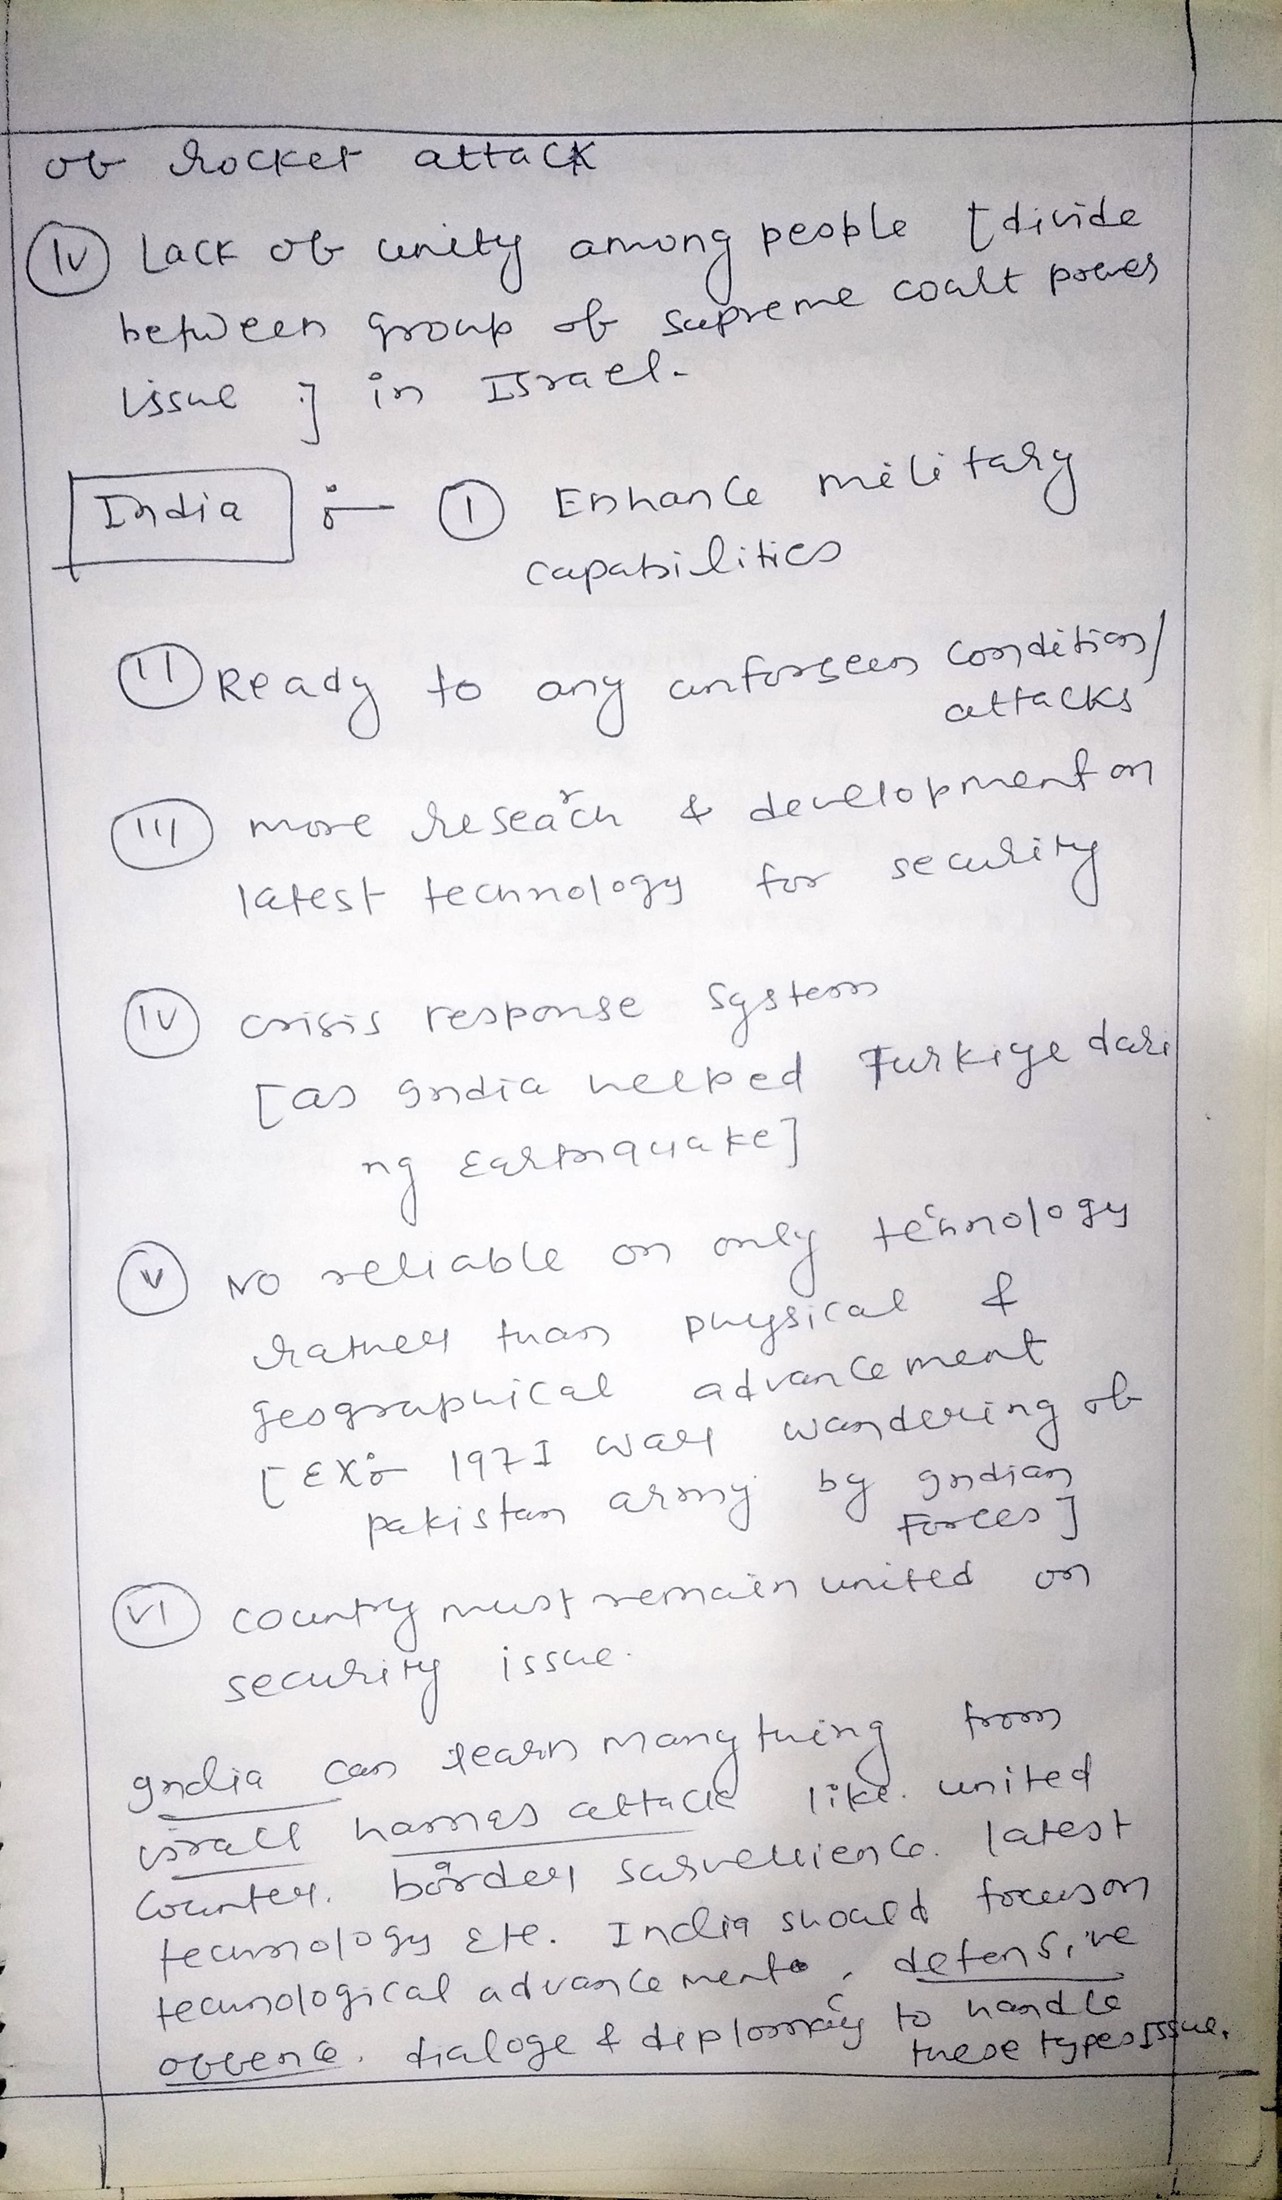 of rocket attack
(iv) Lack of unity among people [divide
between group of supreme court power
issue] in Israel.
India :- (I) Enhance military
capabilities
(II) Ready to any unforseen condition/
attacks
(III) more research & development on
latest technology for security
(IV) crisis response system
[as India helped Turkiye duri
ng Earthquake]
(V) No reliable on only technology
rather than physical &
geographical advancement
[Ex:- 1971 war wandering of
pakistan army by Indian
Forces]
(VI) country must remain united on
security issue.
India can learn many thing from
israel hamas attack like. united
Counter. border survellience. latest
technology Ete. India should focus on
technological advancement, defensive
offence, dialoge & diplomacy to handle
these types Issue.